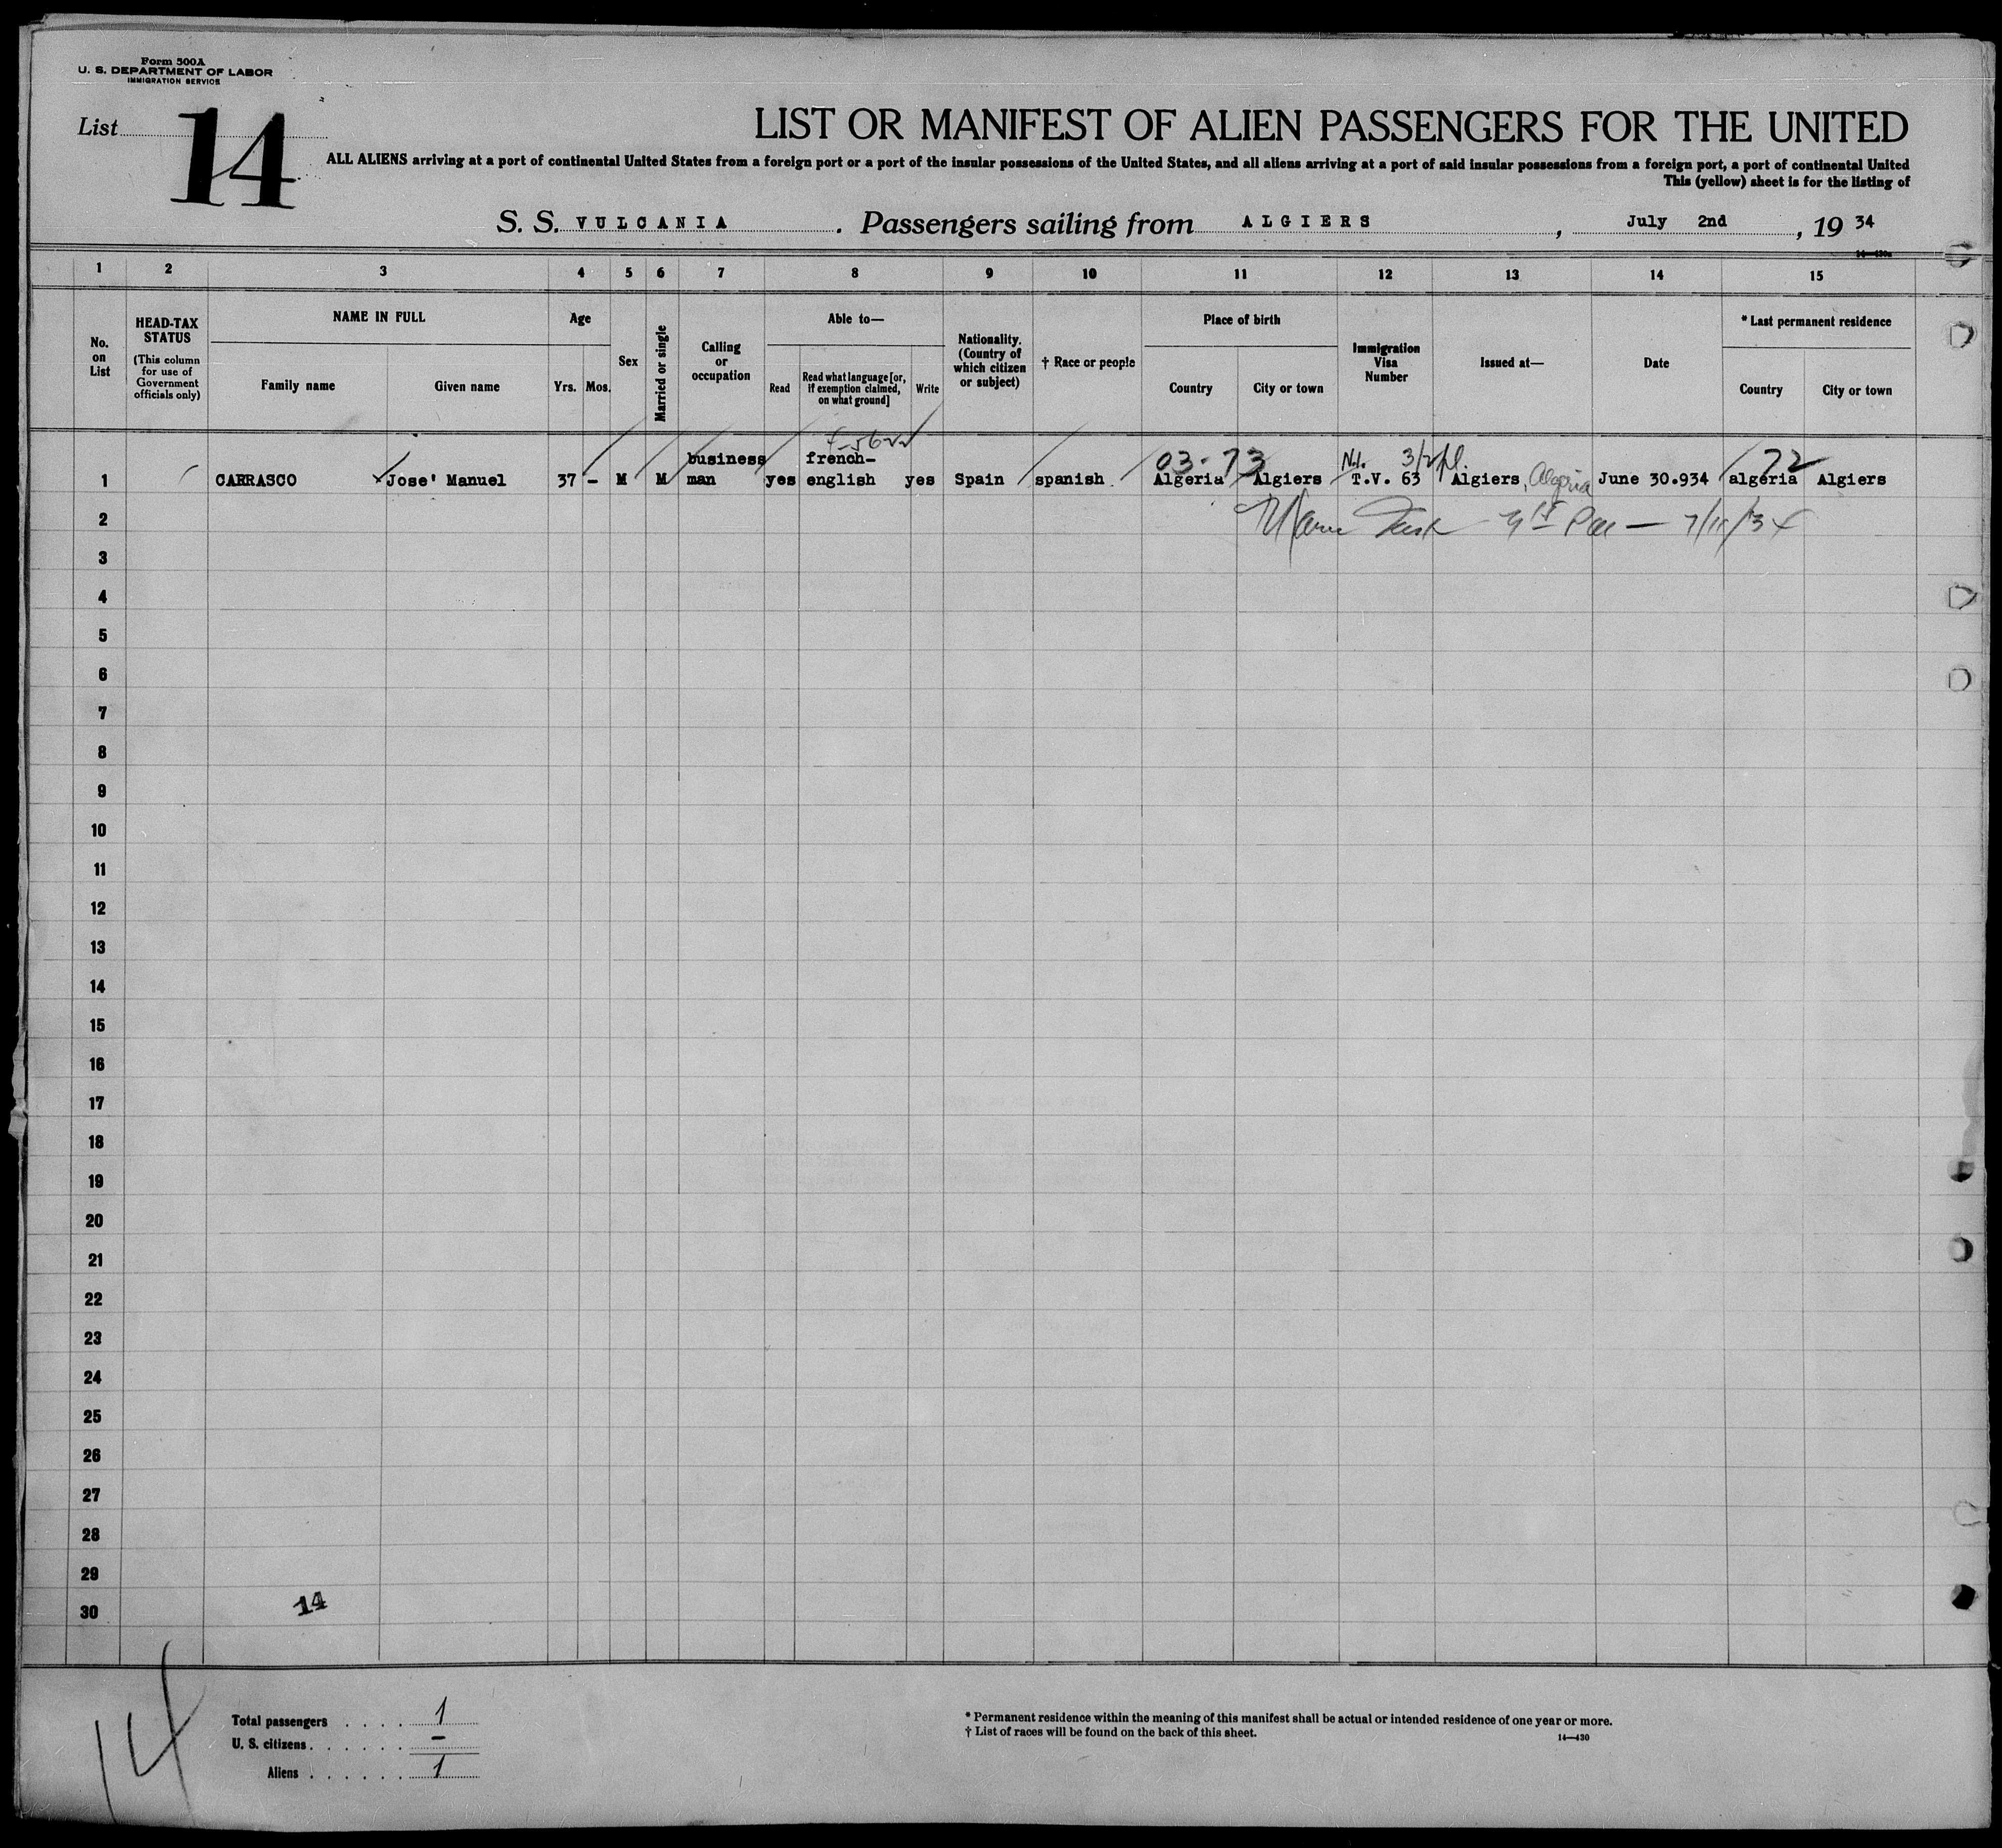 Form 500A
U. S. DEPARTMENT OF LABOR
IMMIGRATION SERVICE
List 14
LIST OR MANIFEST OF ALIEN PASSENGERS FOR THE UNITED
ALL ALIENS arriving at a port of continental United States from a foreign port or a port of the insular possessions of the United States, and all aliens arriving at a port of said insular possessions from a foreign port, a port of continental United
This (yellow) sheet is for the listing of
S. S. VULCANIA. Passengers sailing from ALGIERS, July 2nd, 19 34
14—430a
1 2 3 4 5 6 7 8 9 10 11 12 13 14 15
No. on List
HEAD-TAX STATUS
(This column for use of Government officials only)
NAME IN FULL
Family name
Given name
Age
Yrs. Mos.
Sex
Married or single
Calling or occupation
Able to—
Read
Read what language [or, if exemption claimed, on what ground]
Write
Nationality. (Country of which citizen or subject)
† Race or people
Place of birth
Country
City or town
Immigration Visa Number
Issued at—
Date
* Last permanent residence
Country
City or town
03-73 N.I. 3/2 72
business french-
1 CARRASCO Jose' Manuel 37 - M M man yes english yes Spain spanish Algeria Algiers T.V. 63 Algiers, Algeria June 30.934 algeria Algiers
2 7/11/34
3
4
5
6
7
8
9
10
11
12
13
14
15
16
17
18
19
20
21
22
23
24
25
26
27
28
29
30 14
14
Total passengers . . . . 1
U. S. citizens . . . . . . —
Aliens . . . . . . 1
* Permanent residence within the meaning of this manifest shall be actual or intended residence of one year or more.
† List of races will be found on the back of this sheet.
14—430